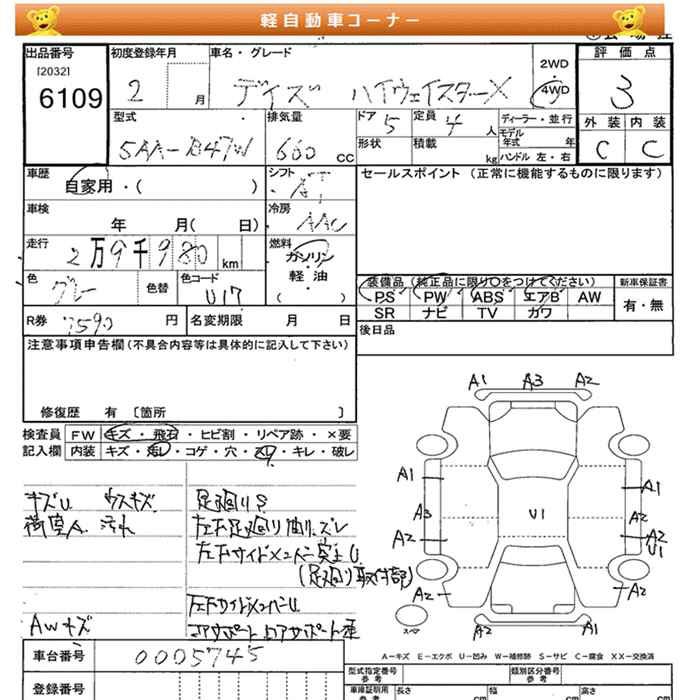 軽自動車コーナー
出品番号
[2032]
6109
初度登録年月
2 月
車名・グレード
デイズ ハイウェイスターX
2WD
4WD
評価点
3
外装 内装
C C
型式
5AA-B47W
排気量
660 CC
ドア 5
定員 4 人
形状
積載 kg
ディーラー・並行
モデル年式 年
ハンドル 左・右
車歴
自家用・( )
シフト
AT
セールスポイント (正常に機能するものに限ります)
車検
年 月( 日)
冷房
AAC
走行
2万9千980 km
燃料
ガソリン
軽・油
( )
色
グレー
色替
色コード
U17
装備品 (純正品に限り○をつけてください)
新車保証書
PS PW ABS エアB AW
有・無
SR ナビ TV カワ
R券 7590 円
名変期限 月 日
後日品
注意事項申告欄(不具合内容等は具体的に記入して下さい)
修復歴 有 〔箇所 〕
検査員
記入欄
FW キズ・飛石・ヒビ割・リペア跡・×要
内装 キズ・汚レ・コゲ・穴・スレ・キレ・破レ
キズU ウスキズ
荷室A 汚れ
AWキズ
足廻りS
左右足廻り曲り、ズレ
左右サイドメンバー突上U
(足廻り取付部)
左右サイドメンバーU
コアサポート
A1 A3 A2
A1 A1
A3 U1 A2
A2 A2
U1
A2 A2
スペア
A2 A1
A-キズ E-エクボ U-凹み W-補修跡 S-サビ C-腐食 XX-交換済
車台番号
0005745
登録番号
型式指定番号
参考
類別区分番号
参考
車庫証明用
参考
長さ cm
幅 cm
高さ cm